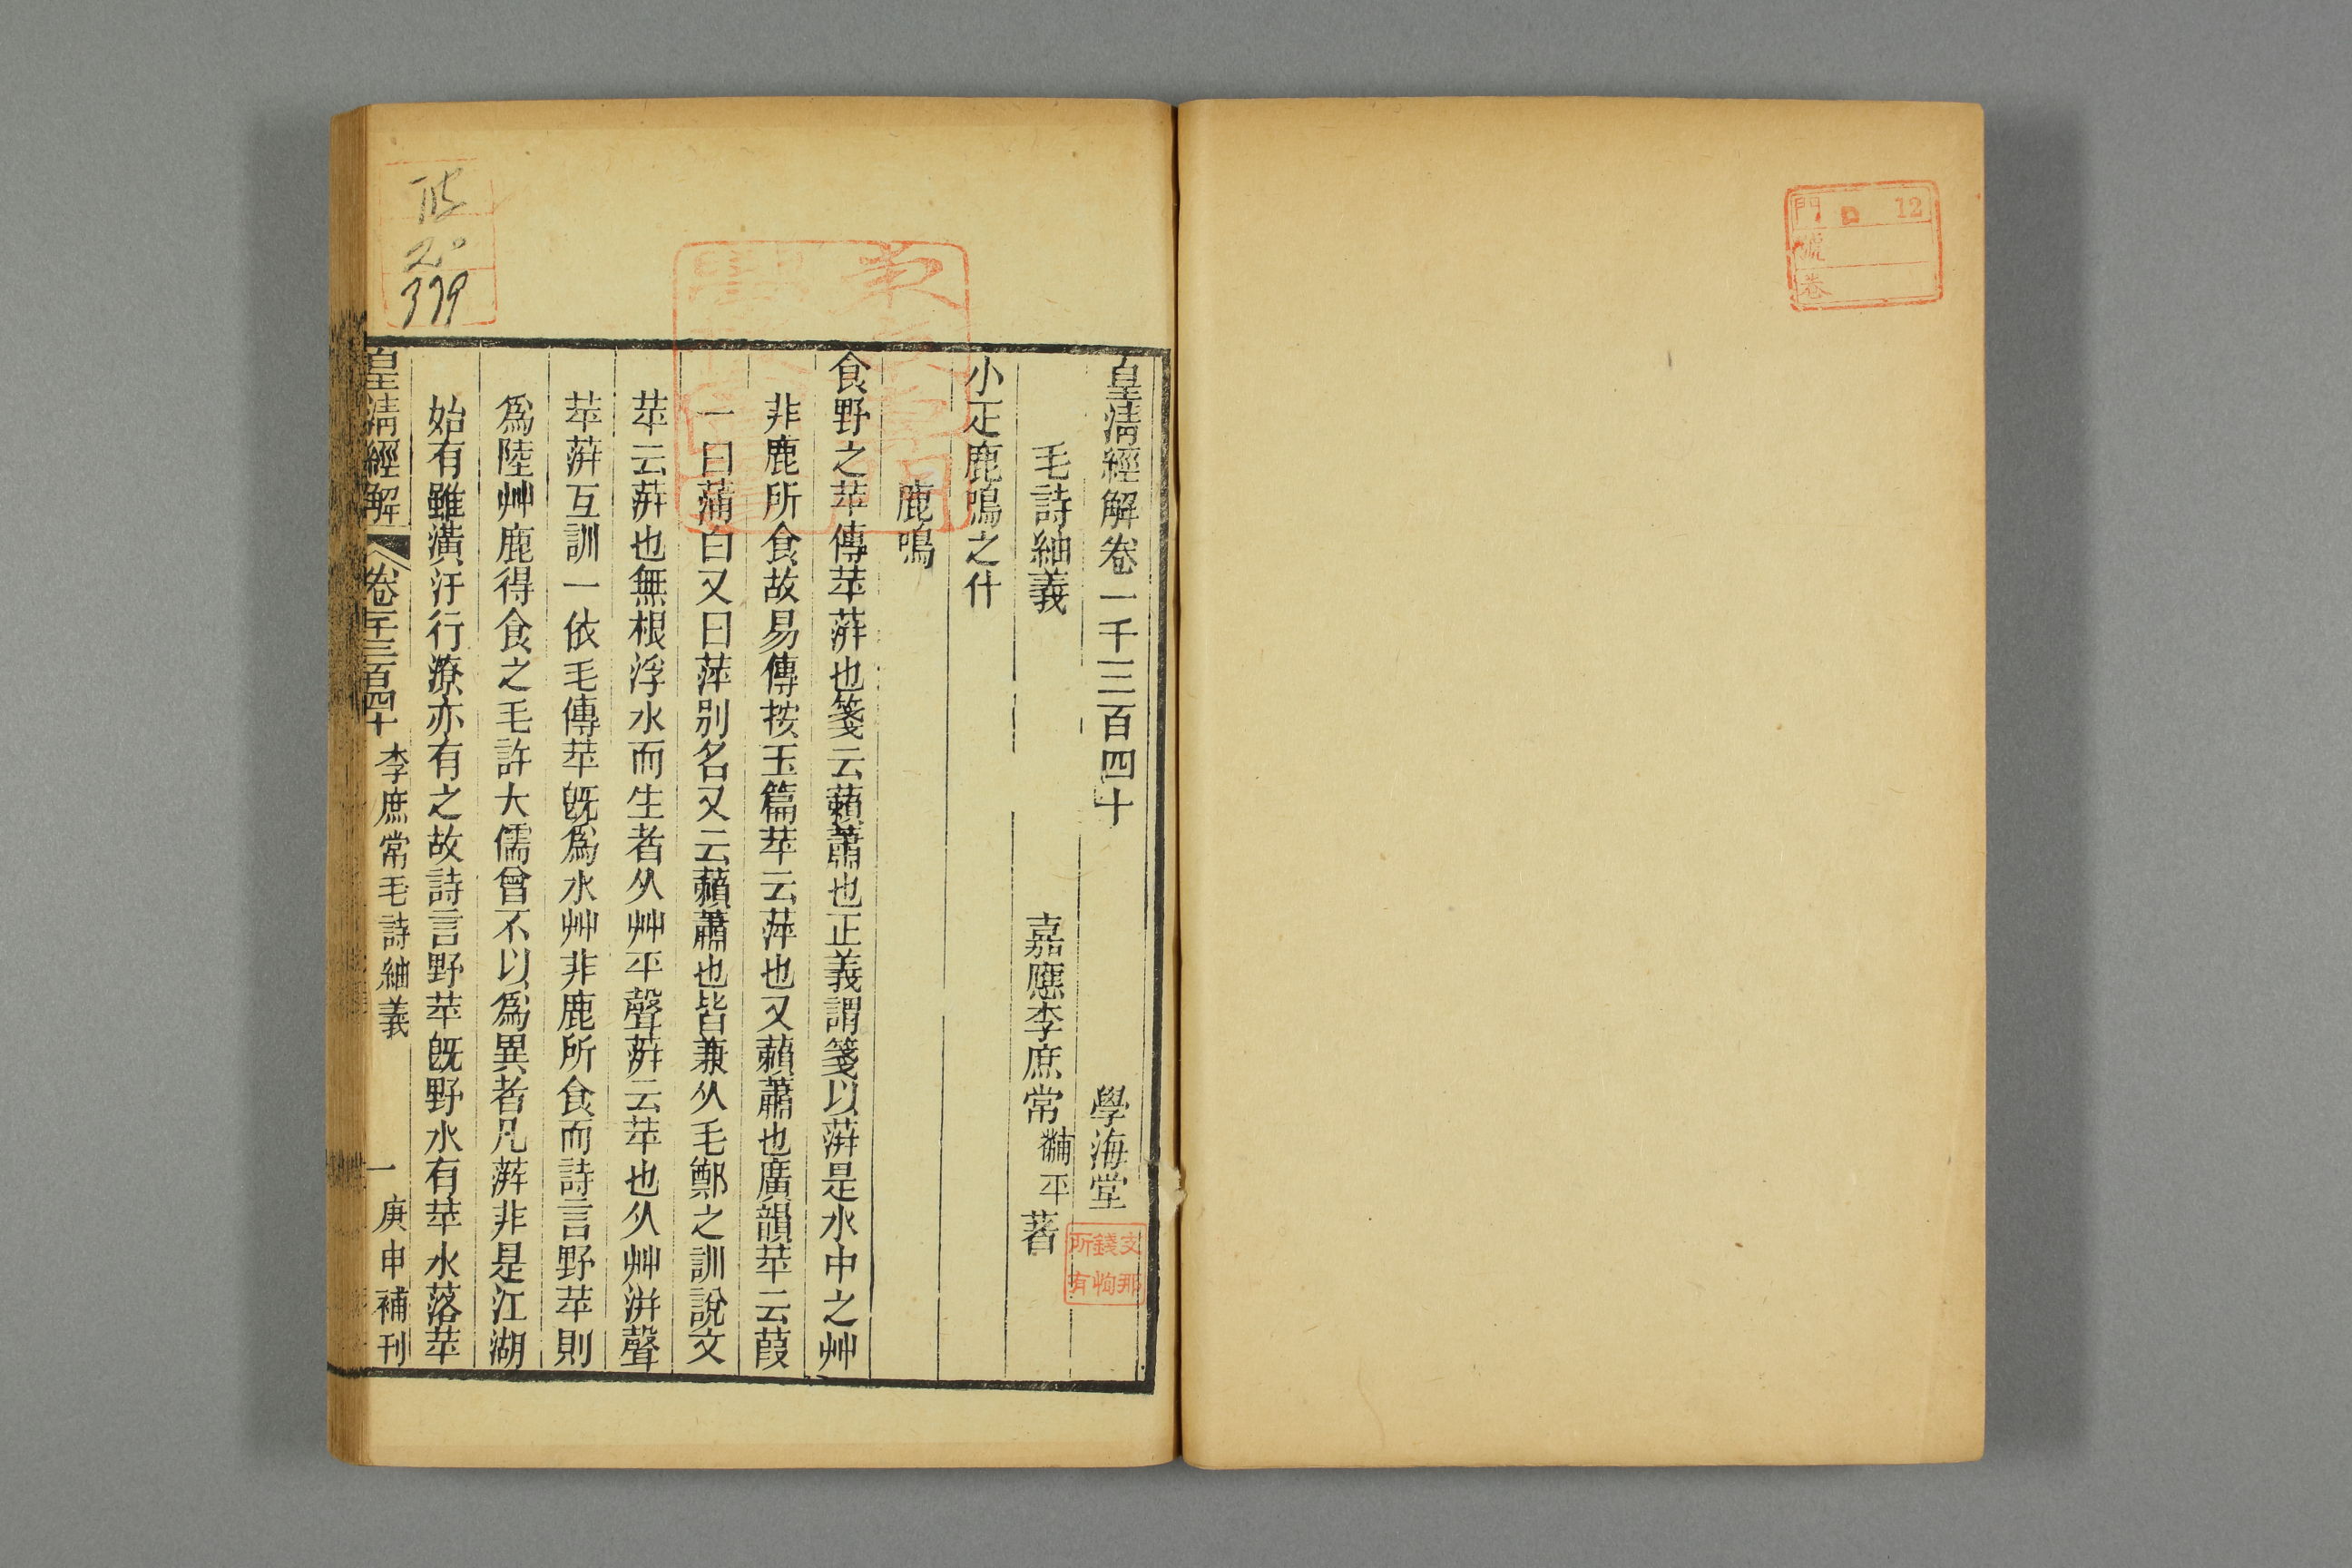 門 12
號
卷
皇清經解卷一千三百四十 學海堂
毛詩紬義 嘉應李庶常黼平著
小疋鹿鳴之什
鹿鳴
食野之苹傳苹蓱也箋云藾蕭也正義謂箋以蓱是水中之艸
非鹿所食故易傳按玉篇苹云萍也又藾蕭也廣韻苹云葭
一曰蒲白又曰萍別名又云藾蕭也皆兼从毛鄭之訓說文
苹云蓱也無根浮水而生者从艸平聲蓱云苹也从艸洴聲
苹蓱互訓一依毛傳苹旣爲水艸非鹿所食而詩言野苹則
爲陸艸鹿得食之毛許大儒曾不以爲異者凡蓱非是江湖
始有雖潢汙行潦亦有之故詩言野苹旣野水有苹水落苹
皇清經解 卷一千三百四十 李庶常毛詩紬義 一 庚申補刊
支那
錢恂
所有
379